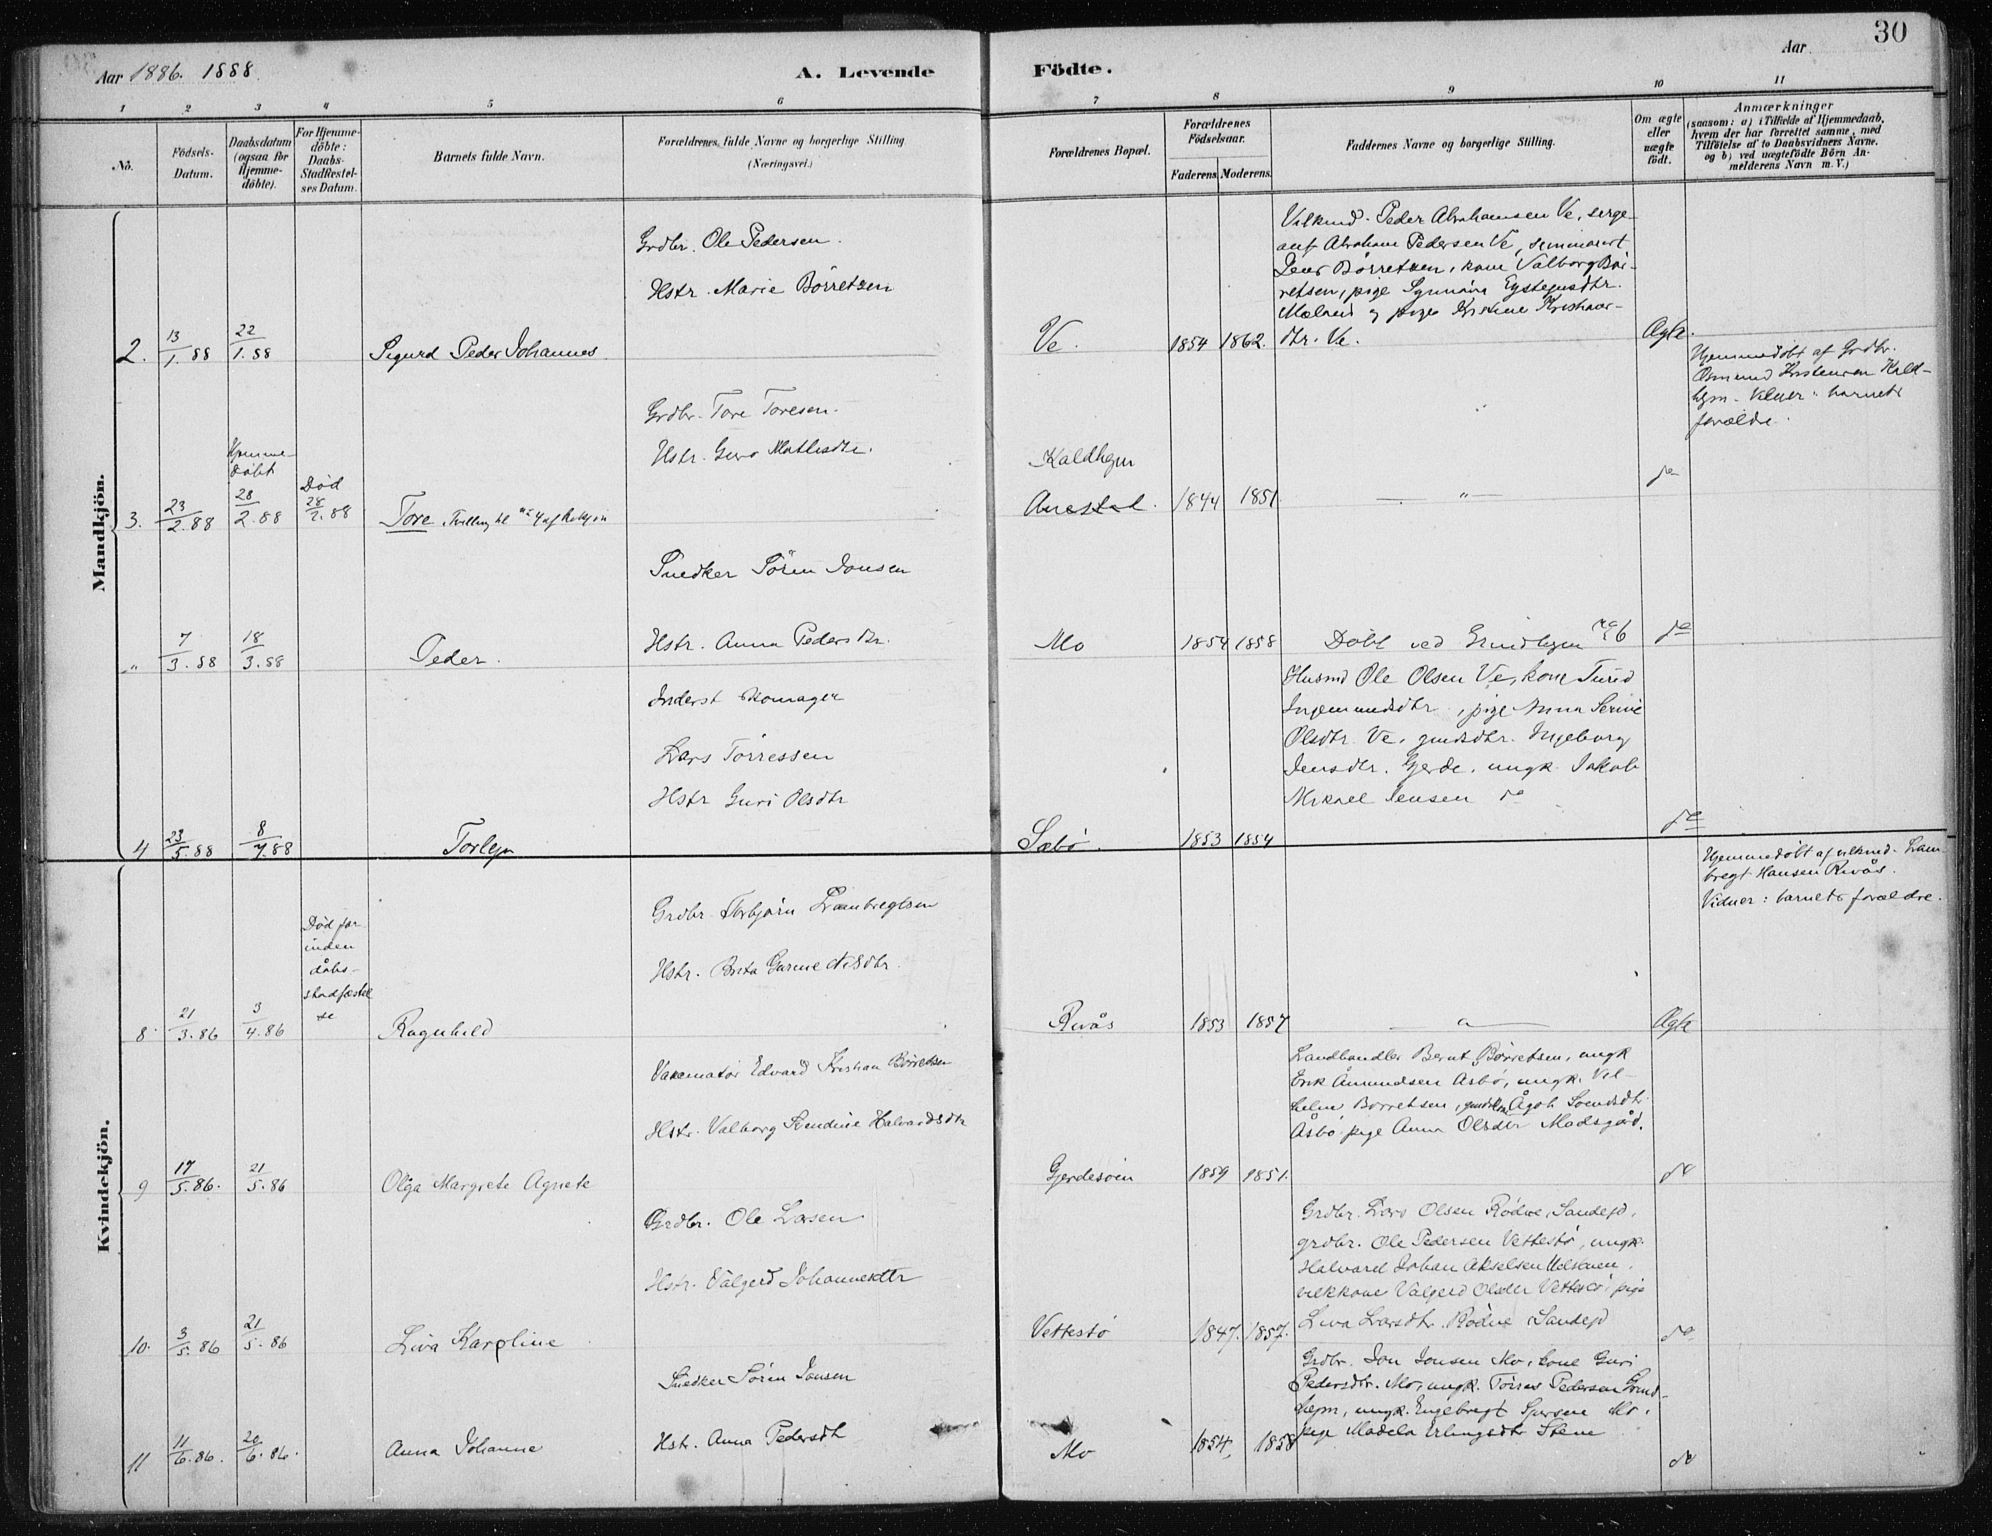 30
Aar 1886. 1888.
A. Levende
Födte.
Aar
1 2 3 4 5 6 7 8 9 10 11
No.
Födsels-
Datum.
Daabsdatum
(ogsaa for
Hjemme-
döbte).
For Hjemme-
döbte:
Daabs-
Stadfæstel-
ses Datum.
Barnets fulde Navn.
Forældrenes fulde Navne og borgerlige Stilling
(Næringsvei.)
Forældrenes Bopæl.
Forældrenes
Födselsaar.
Faderens. Moderens.
Faddernes Navne og borgerlige Stilling.
Om ægte
eller
uægte
födt.
Anmærkninger
(saasom: a) i Tilfælde af Hjemmedaab,
hvem der har forrettet samme, med
Tilföielse af to Daabsvidners Navne,
og b) ved uægtefödte Börn An-
melderens Navn m. V.)
Mandkjön.
2.
13/1.88
22/1.88
Sigurd Peder Johannes
Grdbr. Ole Pedersen.
Hstr. Marie Börretsen
Ve.
1854 1862.
Peder Abrahamsen Ve, serge-
ant Abraham Pedersen Ve, seminarist
Jens Börretsen, kone Valborg Bör-
retsen, pige
Mæland og pige Kristine
dtr. Ve.
Ægte.
3.
23/2.88
Hjemme-
döbt
28/2.88
Död
28/2.88
Tore
Grdbr. Tore Toresen.
Hstr. Guro
Kaldhgm
1844 1851
— " —
do
Hjemmedöbt af Grdbr.
Osmund Kristensen Kald-
hgm. Vidner: barnets
forældre.
"
7/3.88
18/3.88
Peder.
Snedker Sören Jonsen
Hstr. Anna Pedersdtr.
Mo
1854 1858
Döbt ved Grindhgm No 6
do
4
23/5.88
8/7.88
Inderst Skomager
Lars Törressen
Hstr Guri Olsdtr
Sæbö.
1853 1854
Husmd Ole Olsen Ve, kone Turid
Ingemundsdtr, pige Anna Serine
Olsdtr. Ve, gmdsdtr. Ingeborg
Jensdtr. Gjerde, ungk. Jakob
Mikael Jensen do
do
Kvindekjön.
8
21/3.86
3/4.86
Död for-
inden
dåbs-
stadfæstel
se
Ragnhild
Grdbr. Torbjörn Lambregtsen
Hstr. Brita
Rivås
1853 1857
— " —
Ægte
Hjemmedöbt af vilkmd. Lam-
bregt Hansen Rivås.
Vidner: barnets forældre.
9
17/5.86.
21/5.86
Olga Margrete Agnete
Edvard Kristian Börretsen
Hstr. Valborg Halvardsdtr
Gjerdesöen
1859 1851.
Landhandler Bernt Börretsen, ungk
Erik Åmundsen Åsbö, ungk. Vil-
helm Börretsen, Ågot Svendsdtr.
Åsbö pige Anna Olsdtr Madsgård.
do
10.
3/5.86
21/5.86
Liva Karoline
Grdbr. Ole Larsen
Hstr. Valgerd Johannesdtr
Vettestö
1847. 1857.
Grdbr. Lars Olsen Rödne, Sandejd,
grdbr. Ole Pedersen Vettestö, ungk.
Halvard Johan Akselsen
Valgerd Olsdtr Vettestö, pige
Liva Larsdtr. Rödne Sandejd
do
11
11/6.86.
20/6.86.
Anna Johanne
Snedker Sören Jonsen
Hstr. Anna Pedersdtr
Mo
1854, 1858
Grdbr. Jon Jonsen Mo, kone Guri
Pedersdtr. Mo, ungk. Törres Pedersen Grind-
hejm, ungk. Engebregt Mo,
pige Madela Erlingsdtr Stene
do